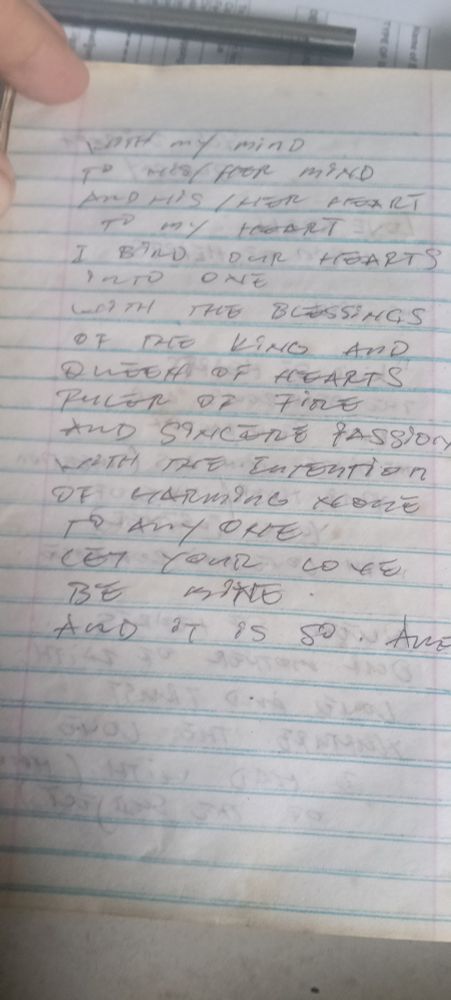 WITH MY MIND
TO HIS/HER MIND
AND HIS/HER HEART
TO MY HEART
I BIND OUR HEARTS
INTO ONE
WITH THE BLESSINGS
OF THE KING AND
QUEEN OF HEARTS
RULER OF FIRE
AND SINCERE PASSION
WITH THE INTENTION
OF HARMING NONE
TO ANY ONE
LET YOUR LOVE
BE MINE.
AND IT IS SO.